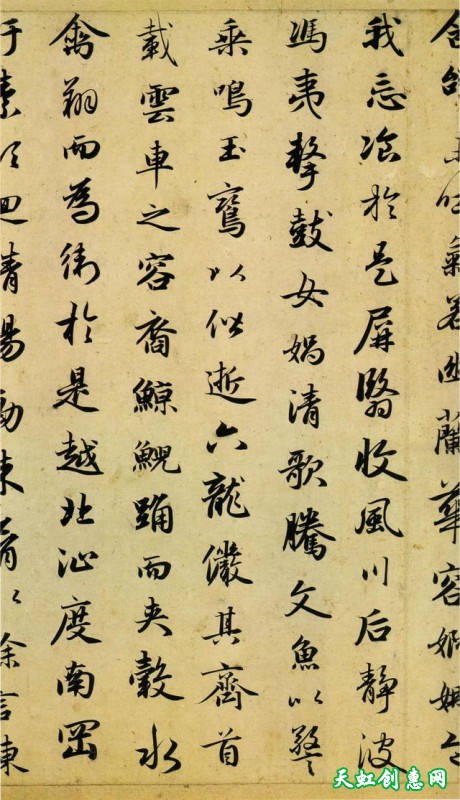 含辭未吐氣若幽蘭華容婀娜令
我忘飡於是屏翳收風川后靜波
馮夷擊鼓女媧清歌騰文魚以警
乘鳴玉鸞以偕逝六龍儼其齊首
載雲車之容裔鯨鯢踊而夾轂水
禽翔而為衛於是越北沚度南岡
紆素領迴清陽動朱脣以徐言陳
天虹创惠网